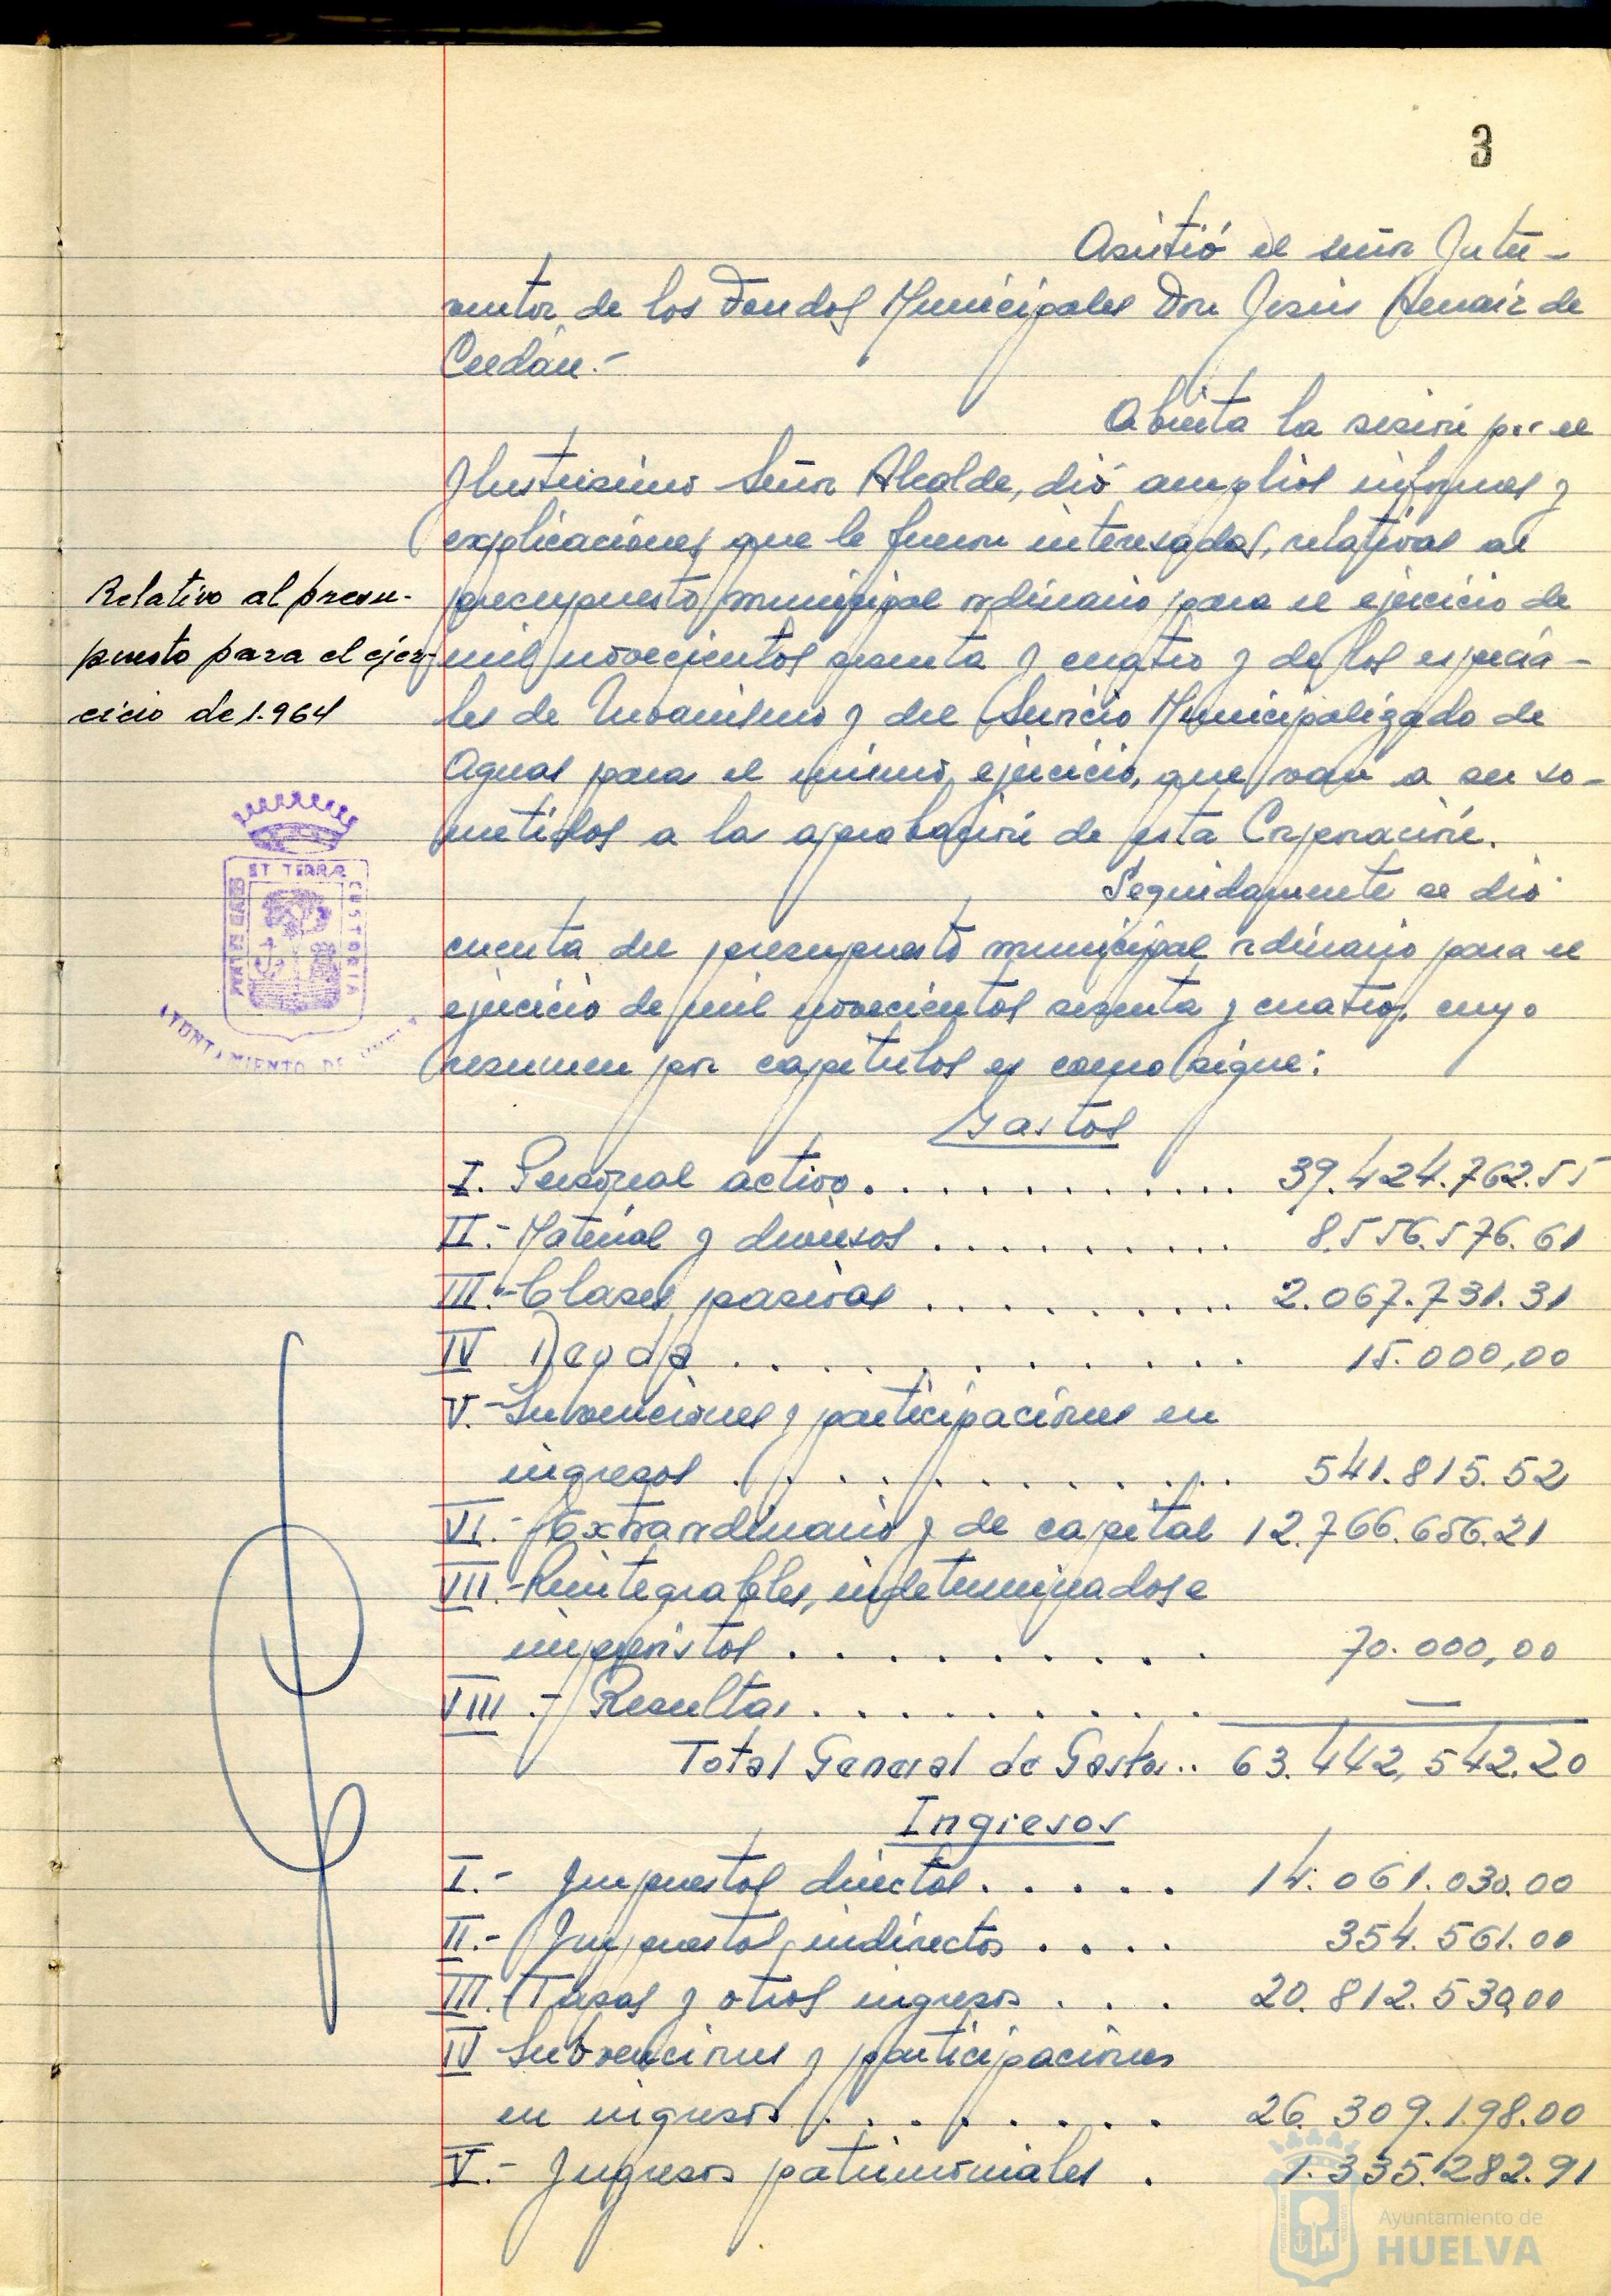 3
Asistió el señor Inter-
ventor de los Fondos Municipales Don Jesús Arnaiz de
Cerdán.-
Abierta la sesión por el
Ilustrísimo Señor Alcalde, dió amplios informes y
explicaciones que le fueron interesadas, relativas al
Relativo al presu-
puesto para el ejer-
cicio de 1.964
presupuesto municipal ordinario para el ejercicio de
mil novecientos sesenta y cuatro y de los especia-
les de Urbanismo y del Servicio Municipalizado de
Aguas para el mismo ejercicio, que van a ser so-
metidos a la aprobación de esta Corporación.
Seguidamente se dió
cuenta del presupuesto municipal ordinario para el
ejercicio de mil novecientos sesenta y cuatro, cuyo
resumen por capítulos es como sigue:
ET TERRÆ
CUSTODIA
PORTUS MARIS
AYUNTAMIENTO DE HUELVA
Gastos
I. Personal activo............ 39.424.762.55
II.- Material y diversos.......... 8.556.576.61
III.- Clases pasivas.......... 2.067.731.31
IV Deuda............ 15.000,00
V.- Subvenciones y participaciones en
ingresos.......... 541.815.52
VI.- Extraordinario y de capital 12.766.656.21
VII.- Reintegrables, indeterminados e
imprevistos......... 70.000,00
VIII.- Resultas......... —
Total General de Gastos.. 63.442,542.20
Ingresos
I.- Impuestos directos..... 14.061.030.00
II.- Impuestos indirectos.... 354.561.00
III. Tasas y otros ingresos... 20.812.530,00
IV Subvenciones y participaciones
en ingresos........ 26.309.198.00
V.- Ingresos patrimoniales. 1.335.282.91
Ayuntamiento de
HUELVA